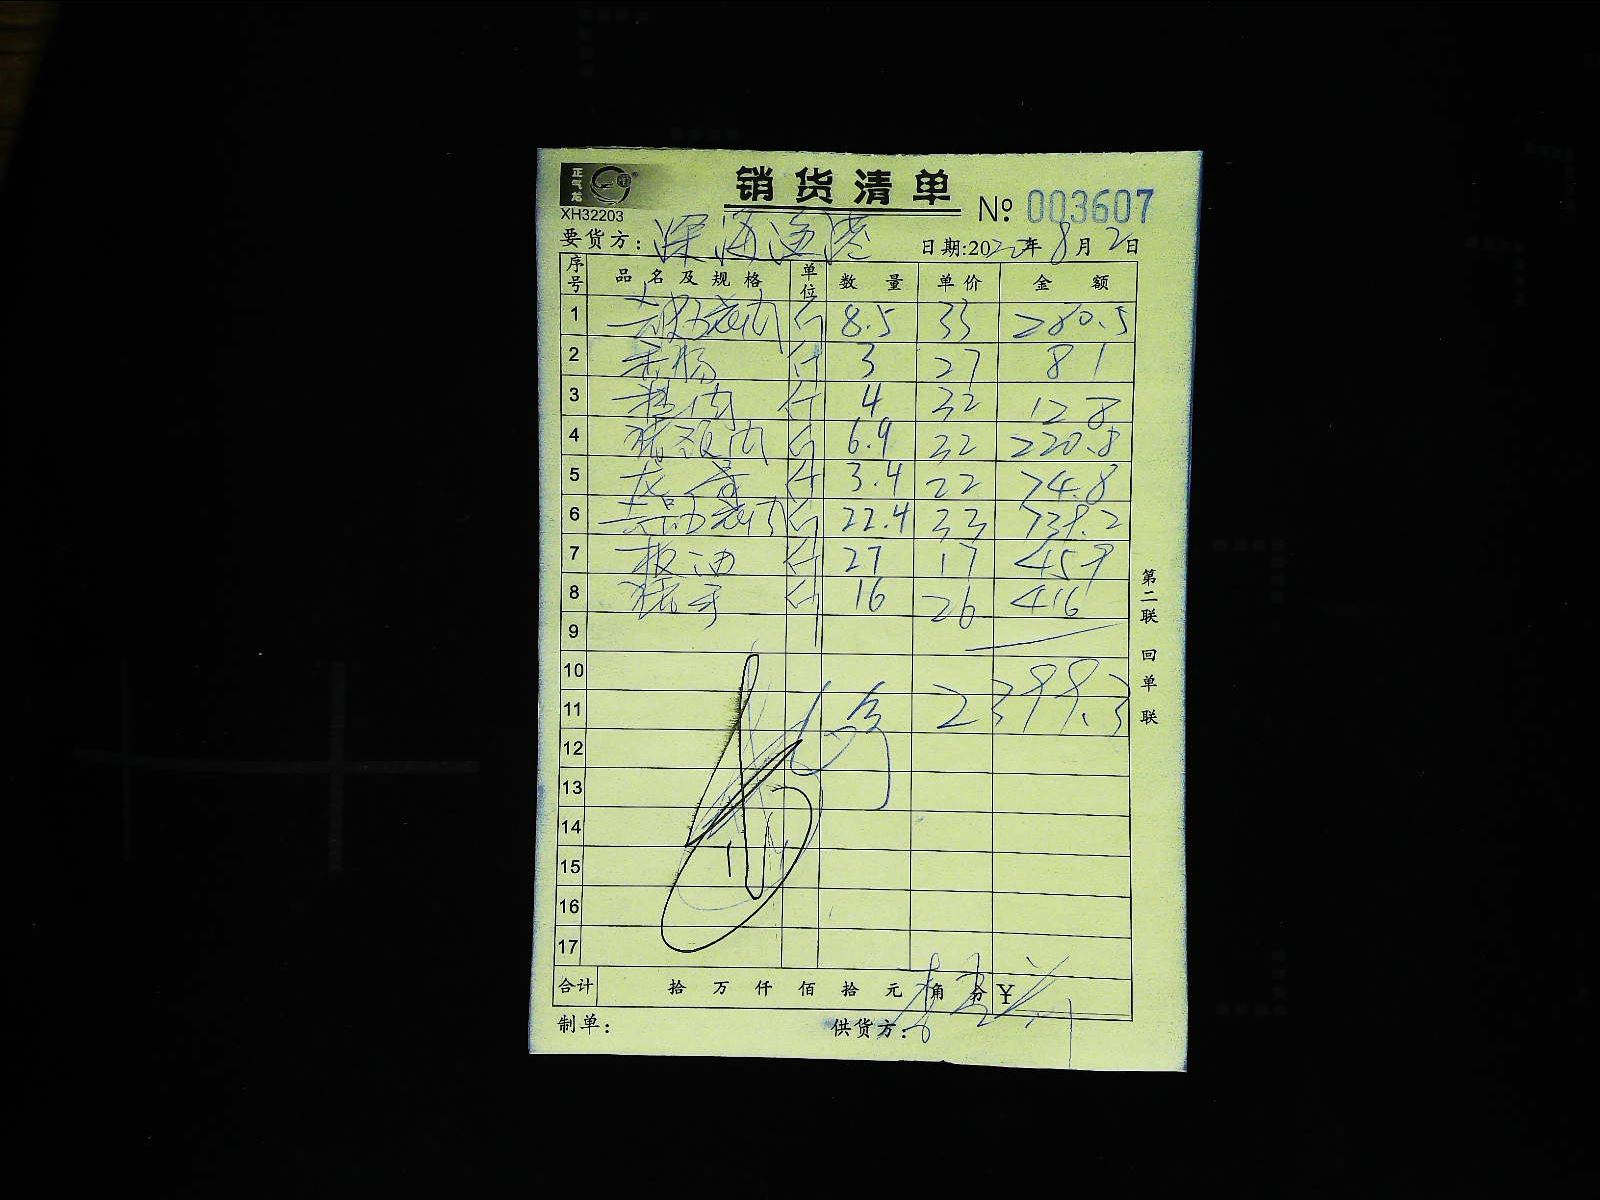 正气龙
销货清单
XH32203
№ 003607
要货方: 深海渔港
日期:2022年8月2日
序号 品名及规格 单位 数量 单价 金额
1 斤 8.5 33 280.5
2 斤 3 27 81
3 精肉 斤 4 32 128
4 斤 6.9 32 220.8
5 龙骨 斤 3.4 22 74.8
6 斤 22.4 33 739.2
7 板油 斤 27 17 459
8 猪手 斤 16 26 416
9
10
11 2399.3
12
13
14
15
16
17
合计 拾 万 仟 佰 拾 元 角 分 ¥
制单: 供货方:
第二联 回单联